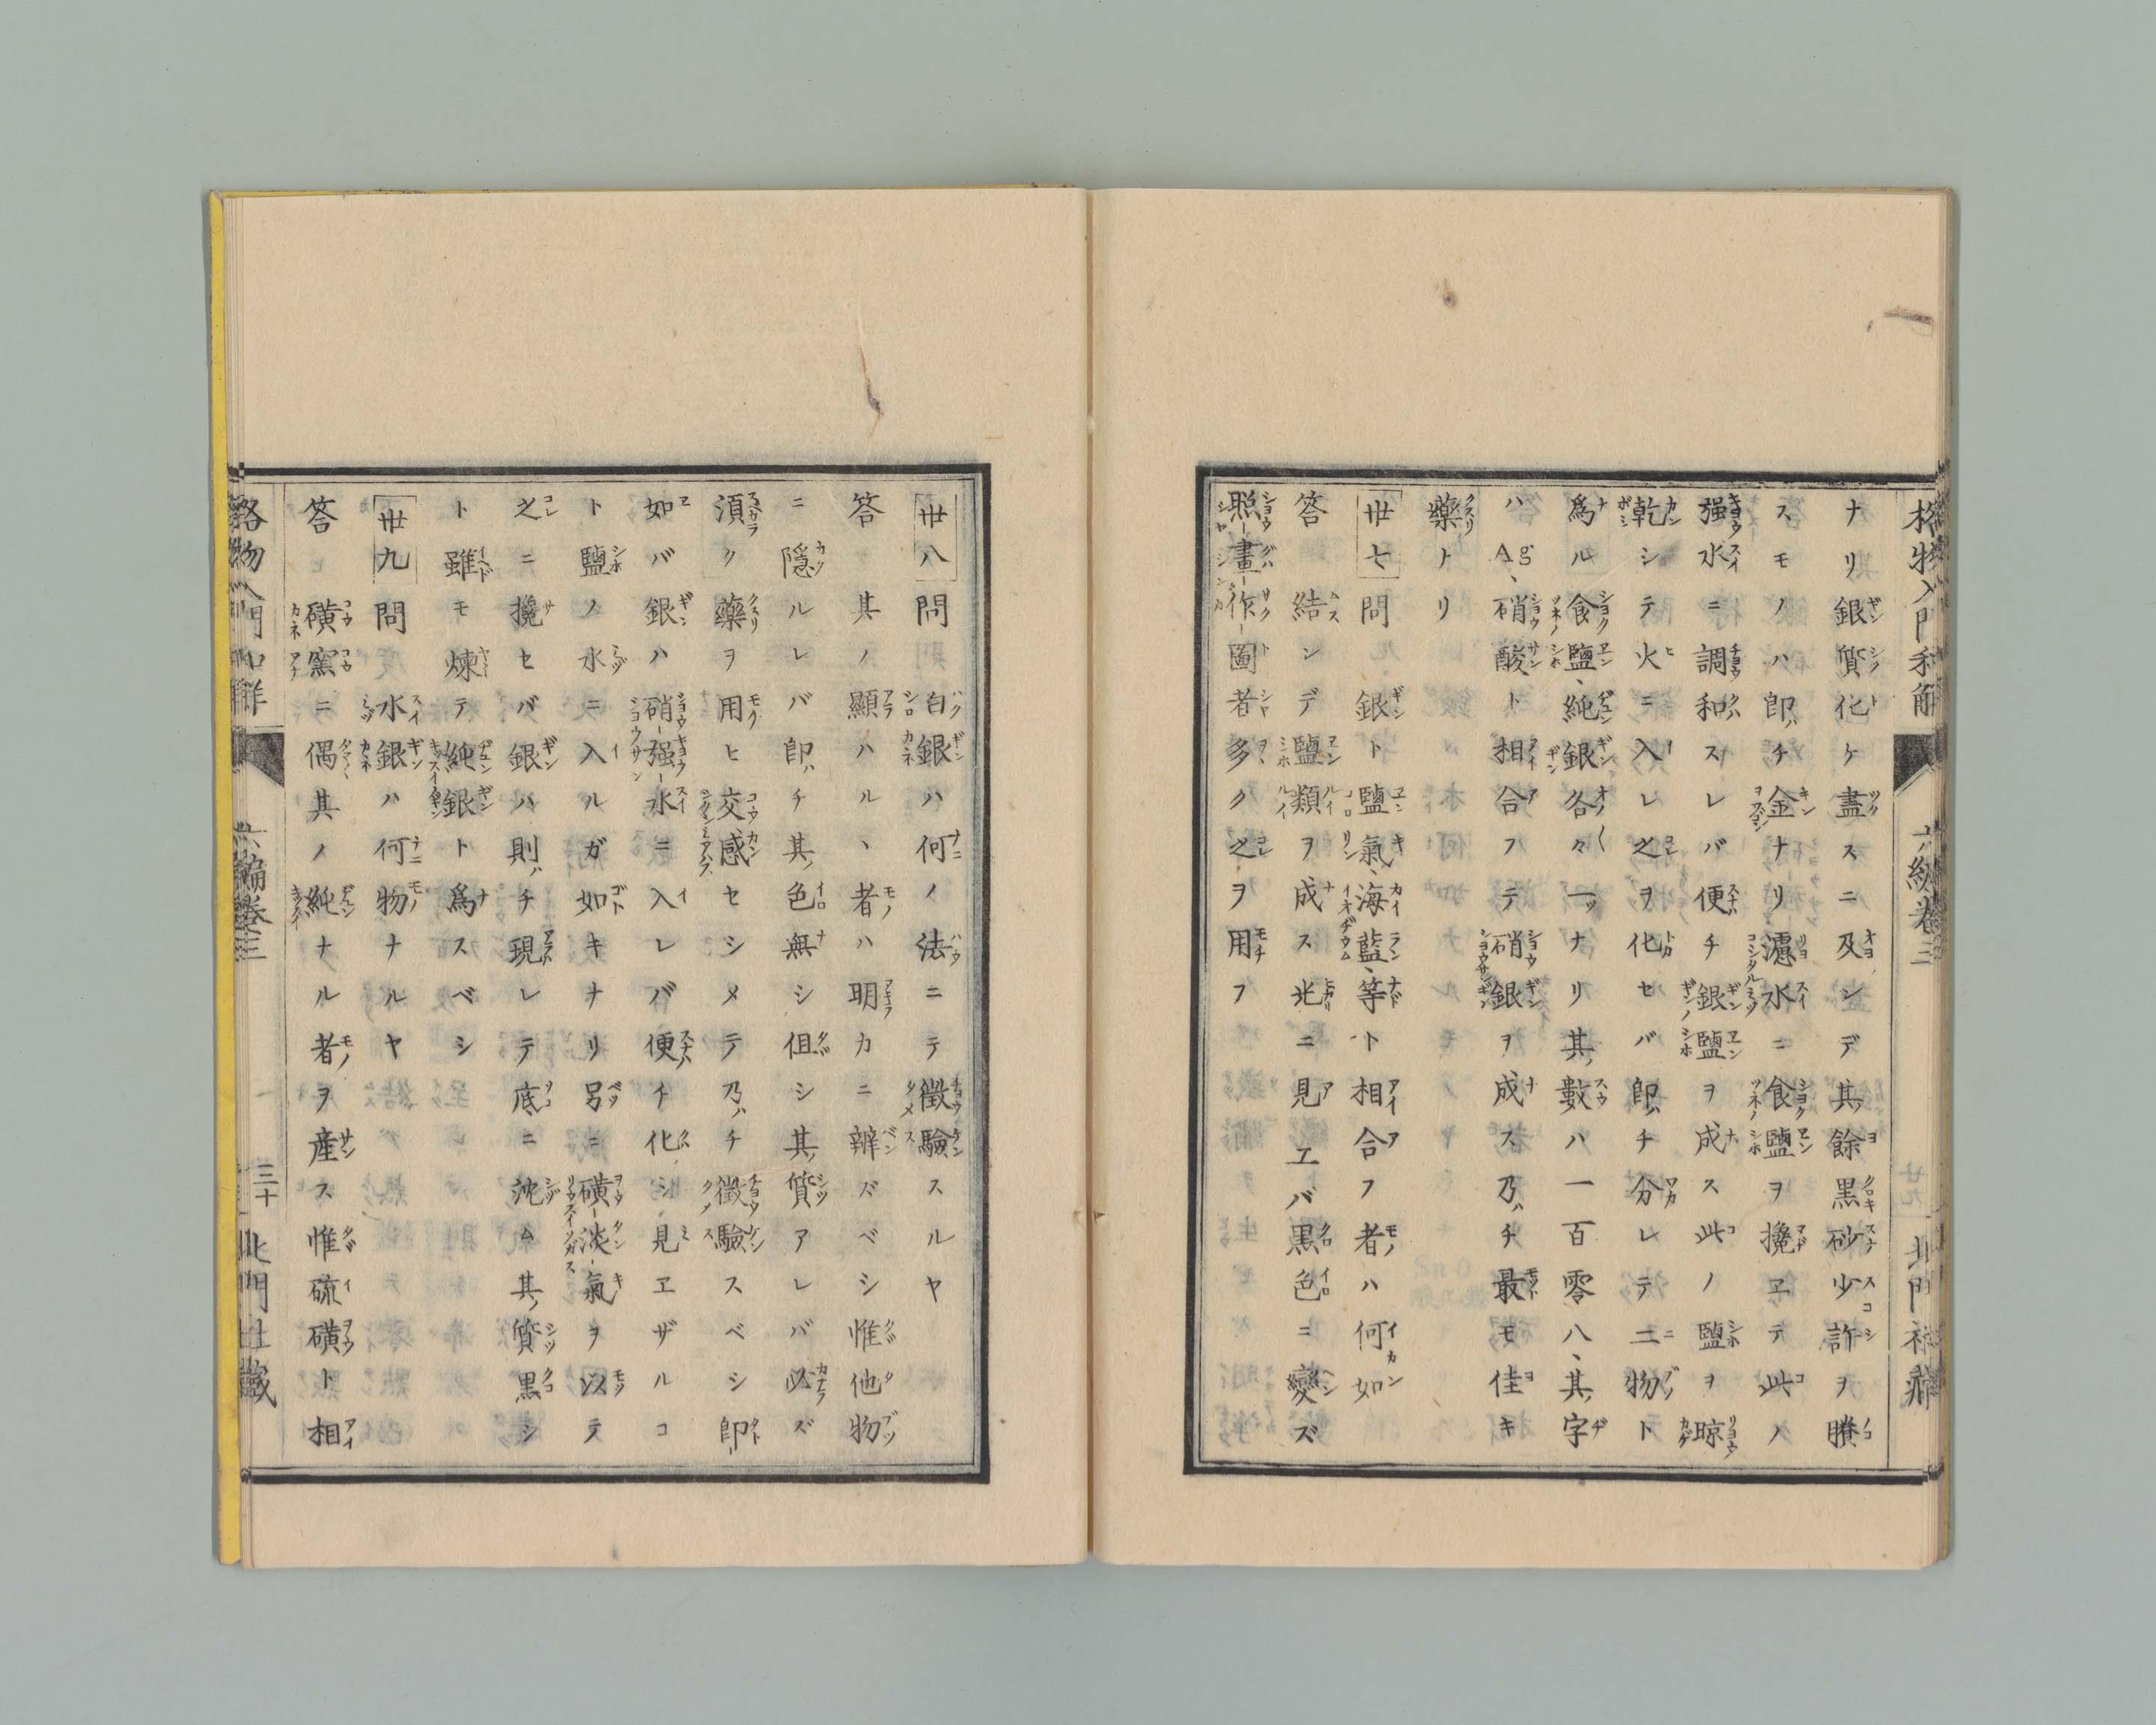 格物入門和解 六編卷三 廿九 北門社藏
ナリ銀質化ケ盡スニ及ンデ其餘黒砂少許ヲ賸
スモノハ即チ金ナリ濾水ニ食鹽ヲ攙エテ此ノ
强水ニ調和スレバ便チ銀鹽ヲ成ス此ノ鹽ヲ晾
乾シテ火ニ入レ之ヲ化セバ即チ分レテ二物ト
爲ル食鹽、純銀各々一ナリ其數ハ一百零八、其字
ハAg、硝酸ト相合フテ硝銀ヲ成ス乃チ最モ佳キ
藥トリ
卅七問銀ト鹽氣、海藍、等ト相合フ者ハ何如
答結ンデ鹽類ヲ成ス光ニ見エバ黒色ニ變ズ
照畫作圖者多ク之ヲ用フ
卅八問白銀ハ何ノ法ニテ徴驗スルヤ
答其ノ顯ハルヽ者ハ明カニ辨ズベシ惟他物
ニ隱ルレバ即チ其色無シ但シ其質アレバ必ズ
須ク藥ヲ用ヒ交感セシメテ乃チ徴驗スベシ即
如バ銀ハ硝强水ニ入レバ便チ化シ見エザルコ
ト鹽ノ水ニ入ルガ如キナリ另ニ磺淡氣ヲ以テ
之ニ攙セバ銀ハ則チ現レテ底ニ沈ム其質黒シ
ト雖モ煉テ純銀ト爲スベシ
卅九問水銀ハ何物ナルヤ
答ヒ磺窯ニ偶其ノ純ナル者ヲ産ス惟硫磺ト相
格物入門和解 六編卷三 三十 北門社藏